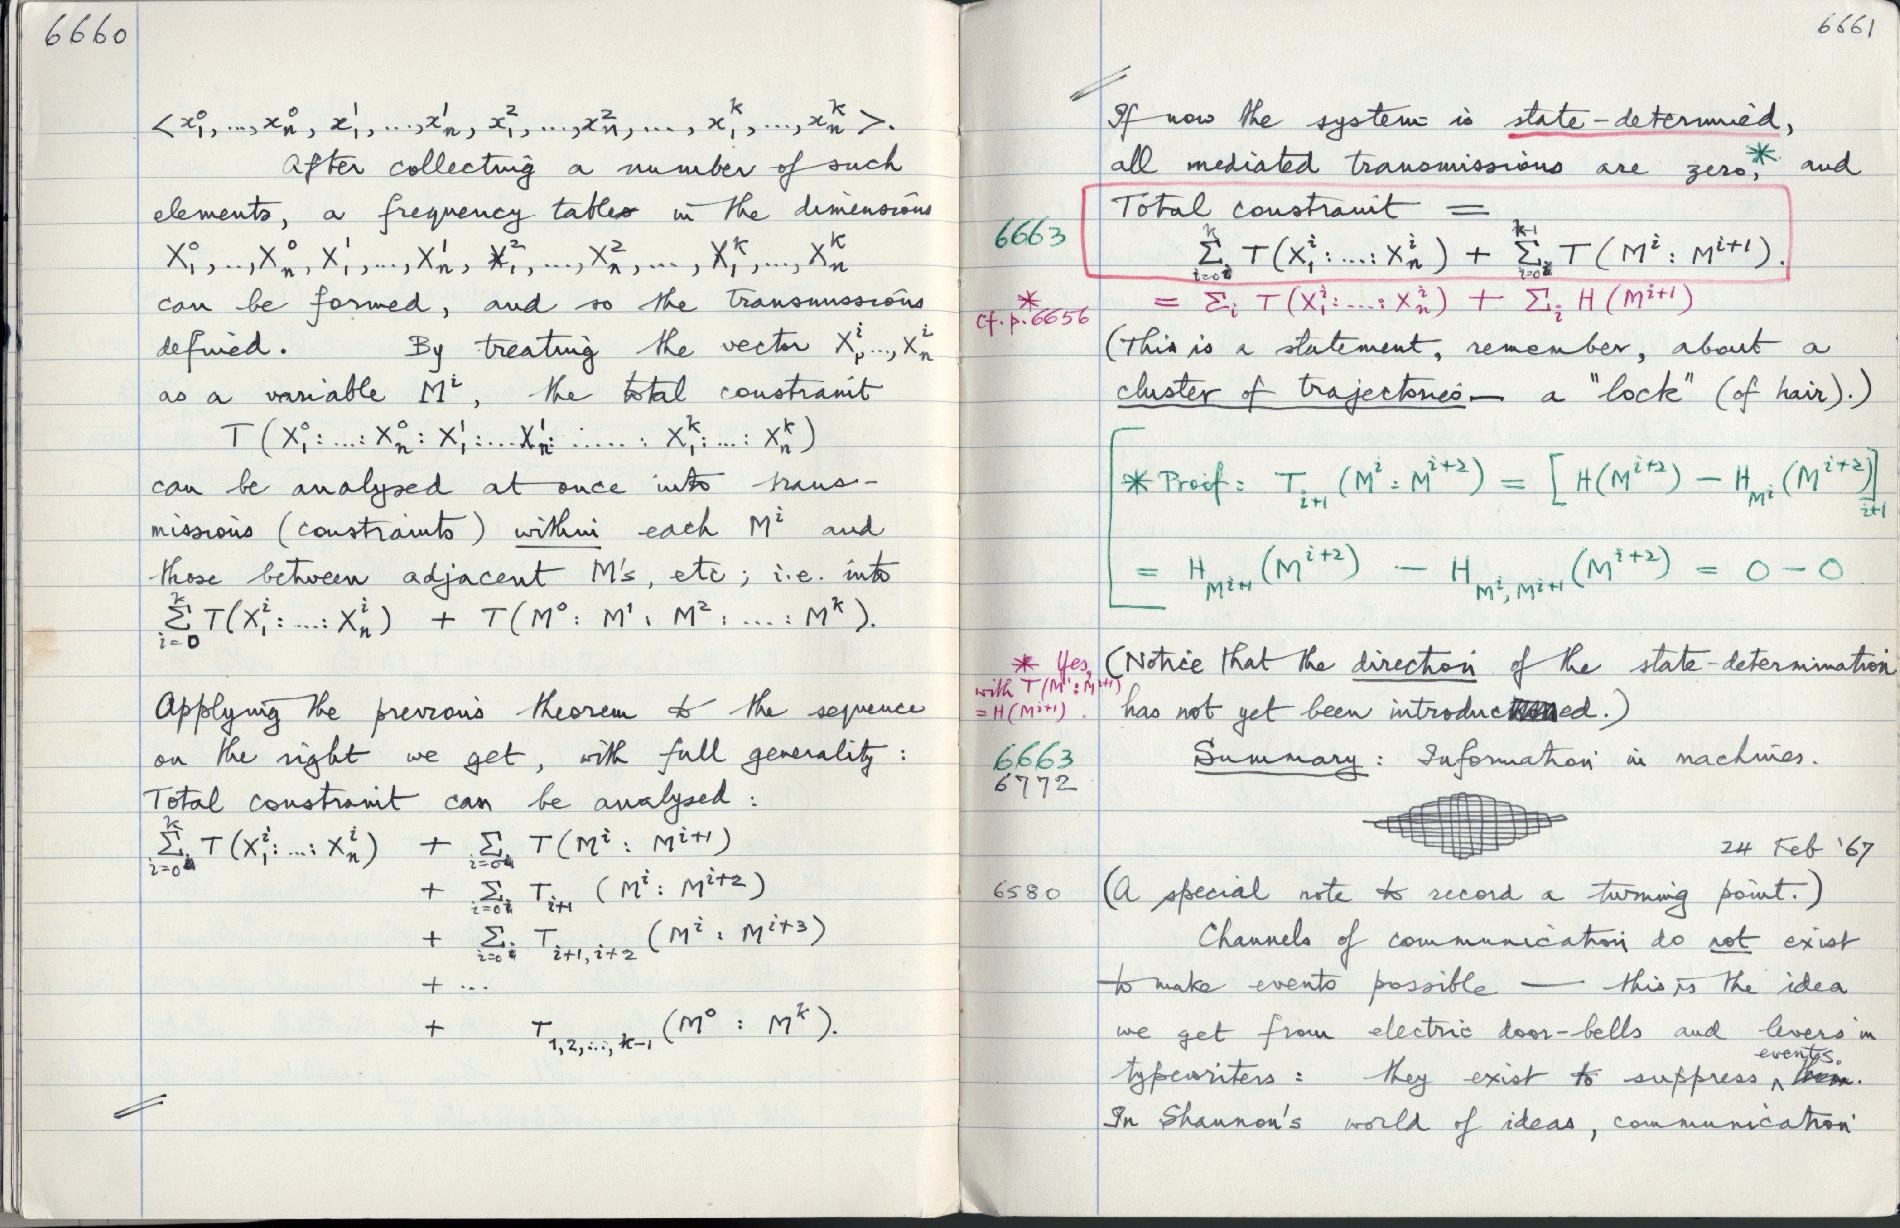 6660
< x₁⁰, ..., xₙ⁰, x₁¹, ..., xₙ¹, x₁², ..., xₙ², ..., x₁ᵏ, ..., xₙᵏ >.
After collecting a number of such
elements, a frequency table in the dimensions
X₁⁰, .., Xₙ⁰, X₁¹, ..., Xₙ¹, X₁², ..., Xₙ², ..., X₁ᵏ, ..., Xₙᵏ
can be formed, and so the transmissions
defined. By treating the vector X₁ⁱ, ..., Xₙⁱ
as a variable Mⁱ, the total constraint
T(X₁⁰: ...: Xₙ⁰: X₁¹: ... Xₙ¹: ..... : X₁ᵏ: ...: Xₙᵏ)
can be analysed at once into trans-
missions (constraints) within each Mⁱ and
those between adjacent M's, etc; i.e. into
∑ᵢ₌₀ᵏ T(X₁ⁱ: ...: Xₙⁱ) + T(M⁰: M¹: M²: ...: Mᵏ).
Applying the previous theorem to the sequence
on the right we get, with full generality:
Total constraint can be analysed:
∑ᵢ₌₀ᵏ T(X₁ⁱ: ...: Xₙⁱ) + ∑ᵢ₌₀ T(Mⁱ: Mⁱ⁺¹)
+ ∑ᵢ₌₀ Tᵢ₊₁ (Mⁱ: Mⁱ⁺²)
+ ∑ᵢ₌₀ Tᵢ₊₁,ᵢ₊₂ (Mⁱ: Mⁱ⁺³)
+ ...
+ T₁,₂,...,ₖ₋₁ (M⁰ : Mᵏ).
6661
If now the system is state-determined,
all mediated transmissions are zero,* and
6663
Total constraint =
∑ᵢ₌₀ᵏ T(X₁ⁱ: ...: Xₙⁱ) + ∑ᵢ₌₀ᵏ⁻¹ T(Mⁱ: Mⁱ⁺¹).
* cf. p. 6656
= ∑ᵢ T(X₁ⁱ: ...: Xₙⁱ) + ∑ᵢ H(Mⁱ⁺¹)
(This is a statement, remember, about a
cluster of trajectories — a "lock" (of hair).)
* Proof: Tᵢ₊₁ (Mⁱ: Mⁱ⁺²) = [H(Mⁱ⁺²) - H_Mⁱ (Mⁱ⁺²)]ᵢ₊₁
= H_Mⁱ⁺¹ (Mⁱ⁺²) - H_Mⁱ,Mⁱ⁺¹ (Mⁱ⁺²) = 0 - 0
* Yes,
with T(Mⁱ: Mⁱ⁺¹)
= H(Mⁱ⁺¹).
(Notice that the direction of the state-determination
has not yet been introduced.)
6663
6772
Summary: Information in machines.
24 Feb '67
6580
(A special note to record a turning point.)
Channels of communication do not exist
to make events possible — this is the idea
we get from electric door-bells and levers in
typewriters: they exist to suppress ^ events.
In Shannon's world of ideas, communication